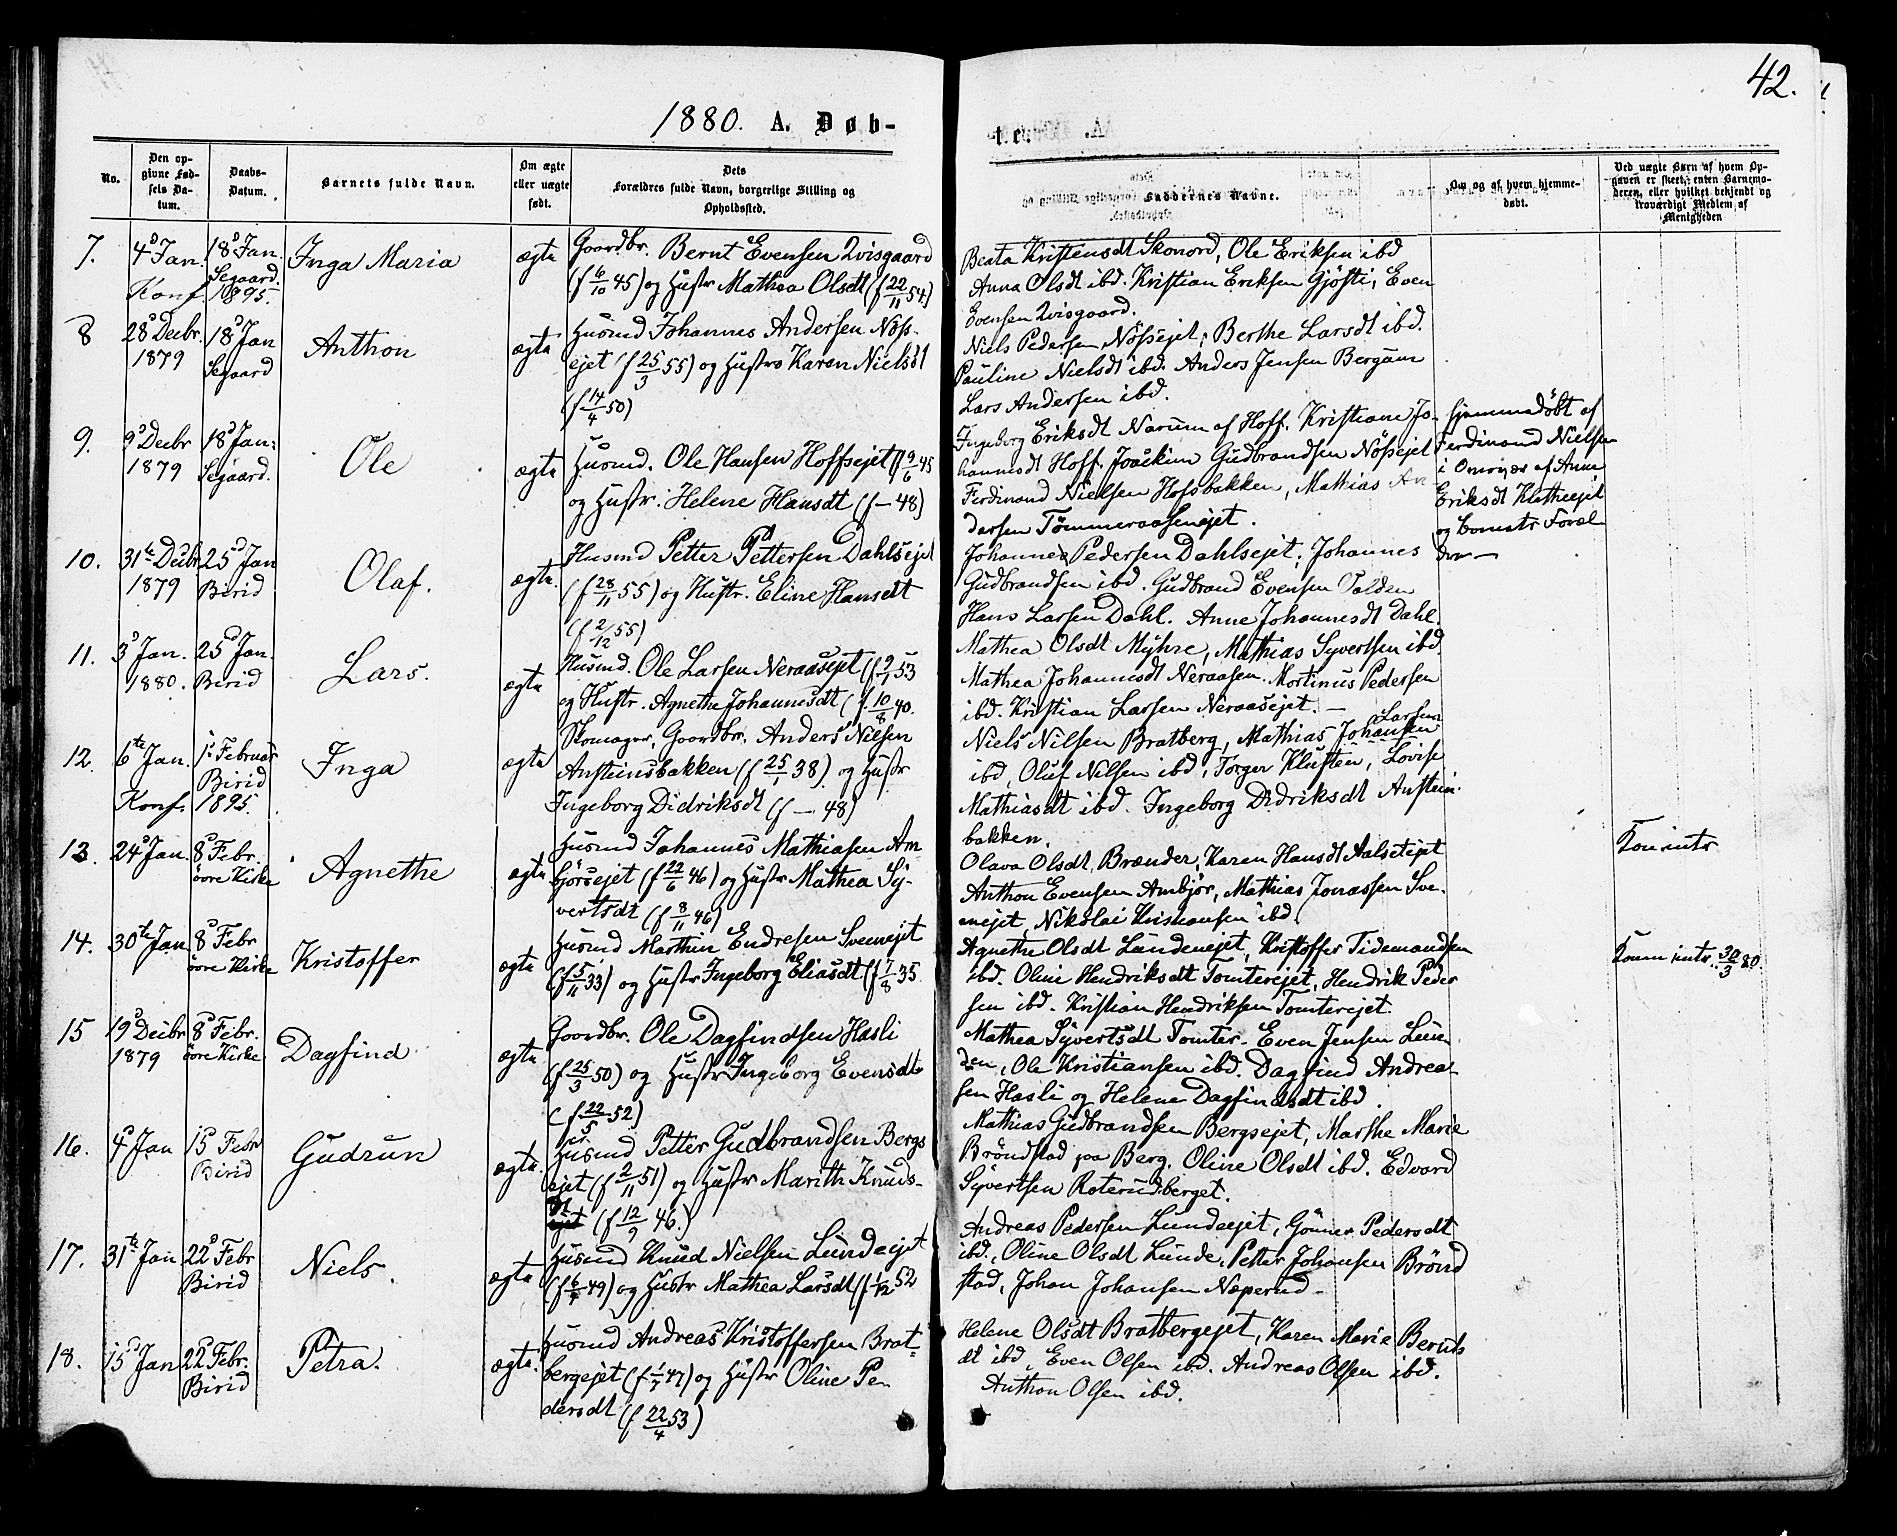 42.
1880. A. Døb-
t e.
No.
Den op-
givne Fød-
sels Da-
tum.
Daabs-
Datum.
Barnets fulde Navn.
Om ægte
eller uægte
født.
Dets
Forældres fulde Navn, borgerlige Stilling og
Opholdssted.
Faddernes Navne.
Om og af hvem hjemme-
døbt.
Ved uægte Børn af hvem Op-
gaven er skeet, enten Barnemo-
deren, eller hvilket bekjendt og
troværdigt Medlem af
Menigheden
7. 4d Jan. 18d Jan. Inga Maria ægte Gaardbr. Bernt Evensen Qvisgaard
Segaard (f 6/10 45) og Hustr Mathea Olsdt (f 22/11 54)
Konf 1895.
Beata Kristensdt Skonord, Ole Eriksen ibd
Anna Olsdt ibd. Kristian Eriksen Gjøsti, Even
Evensen Qvisgaard.
8 28d Decbr. 18d Jan Anthon ægte Husmd Johannes Andersen Nøss-
1879 Segaard ejet (f 25/3 55) og Hustro Karen Nielsdt
(f 14/4 50)
Niels Pedersen Nøssejet, Berthe Larsdt ibd.
Pauline Nielsdt ibd. Anders Jensen Bergum
Lars Andersen ibd.
9. 9d Decbr 18d Jan: Ole ægte Husmd. Ole Hansen Hoffsejet (f 9/6 45
1879 Segaard. og Hustr. Helene Hansdt (f — 48)
Ingeborg Eriksdt Narum af Hoff. Kristiane Jo-
hannesdt Hoff. Joackim Gudbrandsen Nøssejet
Ferdinand Nielsen Hofsbakken, Mathias An-
dersen Tømmeraasenejet.
Hjemmedöbt af
Ferdinand Nielsen
i af Anne
Eriksdt
og Foræl
dre —
10. 31te Decbr 25d Jan Olaf. ægte. Husmd Petter Pettersen Dahlsejet
1879 Birid (f 28/11 55) og Hustr. Eline Hansdt
(f 2/12 55)
Johannes Pedersen Dahlsejet, Johannes
Gudbrandsen ibd. Gudbrand Evensen
Hans Larsen Dahl. Anne Johannesdt Dahl.
11. 3d Jan. 25d Jan. Lars. ægte Husmd. Ole Larsen Neraasejet (f 9/1 53
1880. Birid og Hustr. Agnethe Johannesdt (f. 10/8 40.
Mathea Olsdt Myhre, Mathias Syvertsen ibd.
Mathea Johannesdt Neraasen. Mortinus Pedersen
ibd. Kristian Larsen Neraasejet. —
12. 6te Jan. 1s Februar Inga ægte Skomager, Gaardbr. Anders Nilsen
Birid Ansteinsbakken (f 25/1 38) og Hustr
Konf. 1895. Ingeborg Didriksdt (f — 48)
Larsen
Niels Nilsen Bratberg, Mathias Johansen
ibd, Oluf Nilsen ibd, Torger Klusten, Lovise
Mathiasdt ibd. Ingeborg Didriksdt Anstein-
bakken.
13. 24d Jan. 8d Febr. Agnethe ægte Husmd Johannes Mathiasen Am
övre Kirke björsejet (f 22/6 46) og Hustr Mathea Sy-
vertsdt (f 8/11 46)
Olava Olsdt Brænder, Karen Hansdt Aalsetejet
Anthon Evensen Ambjör, Mathias Jonassen Sve-
enejet, Nikolai Kristiansen ibd.
14. 30te Jan. 8d Febr Kristoffer ægte Husmd Marthin Endresen Sveenejet
övre Kirke (f 5/11 33) og Hustr Ingeborg Eliasdt (f 7/8 35
Agnethe Olsdt Lundenejet, Kristoffer Tidemandsen
ibd. Oline Hendriksdt Tomterejet, Hendrik Peder
sen ibd. Kristian Hendriksen Tomterejet.
30/3 80.
15 19d Decbr 8d Febr. Dagfind ægte Gaardbr. Ole Dagfindsen Hasli
1879 övre Kirke (f 25/3 50) og Hustr Ingeborg Evensdt
(f 22/5 52)
Mathea Syvertsdt Tomter. Even Jensen Lun-
den, Ole Kristiansen ibd. Dagfind Andrea-
sen Hasli og Helene Dagfindsdt ibd.
16. 4d Jan 15d Febr Gudrun ægte. Husmd Petter Gudbrandsen Bergs
Birid ejet (f 2/11 51) og Hustr Marith Knuds-
dt (f 12/9 46.)
Mathias Gudbrandsen Bergsejet, Marthe Marie
Bröndstad paa Berg. Oline Olsdt ibd. Edvard
Syvertsen Roterudberget.
17. 31te Jan 22d Febr Niels. ægte Husmd Knud Nielsen Lundeejet
Birid (f 6/7 49) og Hustr Mathea Larsdt (f 1/12 52
Andreas Pedersen Lundeejet, Gunner Pedersdt
ibd., Oline Olsdt Lunde, Petter Johansen Brönd
stad, Johan Johansen Næperud -
18. 15d Jan 22d Febr. Petra. ægte. Husmd Andreas Kristoffersen Brat-
Birid bergejet (f 1/7 47) og Hustr Oline Pe
dersdt (f 22/4 53)
Helene Olsdt Bratbergejet, Karen Marie Bernts
dt ibd, Even Olsen ibd. Andreas Olsen ibd.
Anthon Olsen ibd.